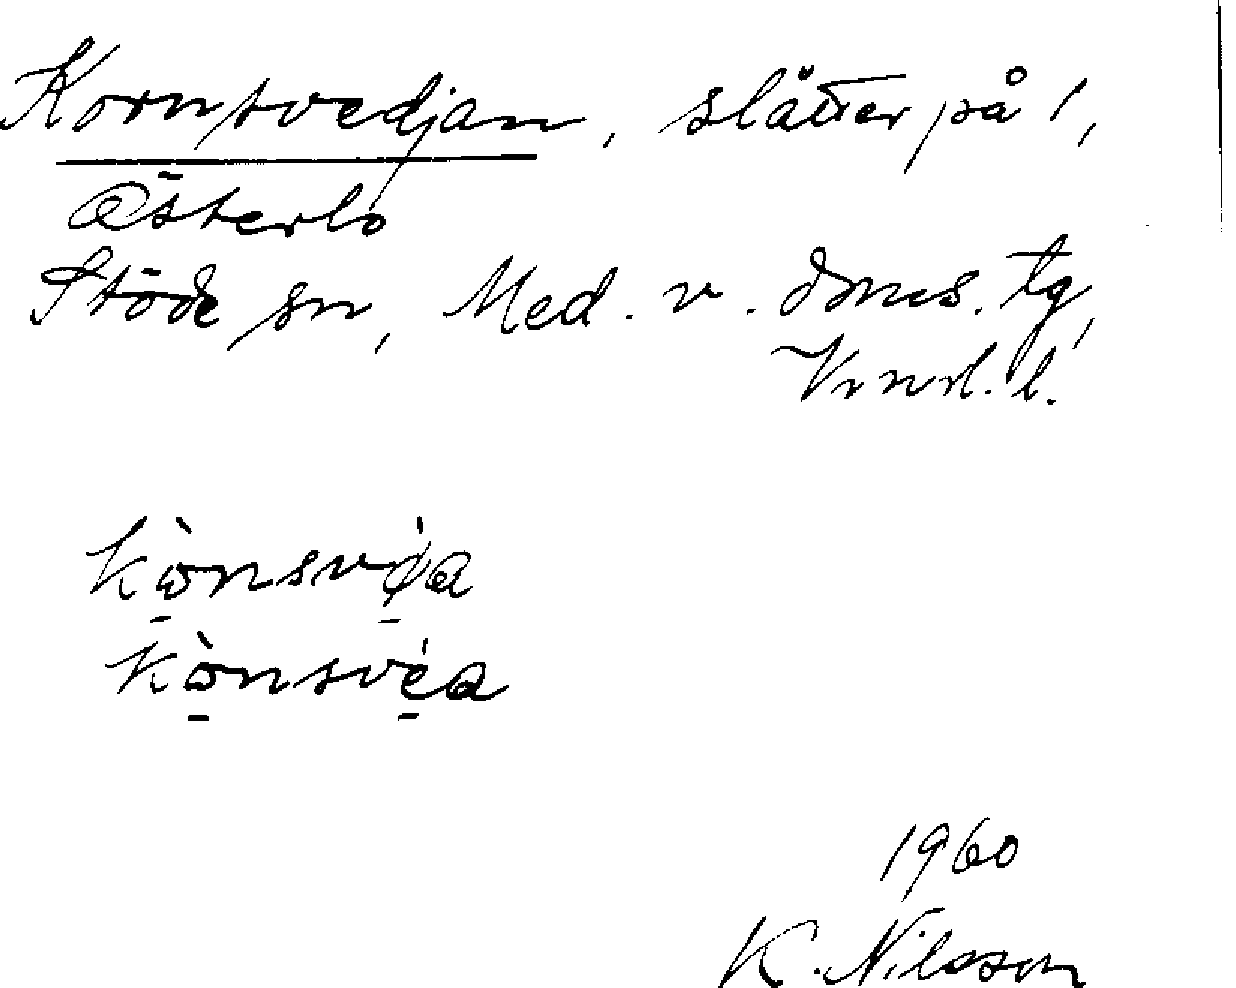 Kornsvedjan, slåtter på 1,
Österlo
Stöde sn, Med. v. dmes. tg,
Vrnrl. l.
kònsvéa
kònsvéa
1960
K. Nilsson